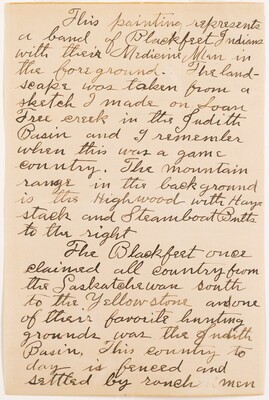 This painting represents
a band of Blackfeet Indians
with their Medicine Man in
the foreground. The land-
scape was taken from a
sketch I made on Loan
Tree creek in the Judith
Basin and I remember
when this was a game
country. The mountain
range in the background
is the Highwood with Haye
stack and Steamboat Butts
to the right
The Blackfeet once
claimed all country from
the Saskatchewan south
to the Yellowstone and one
of their favorite hunting
grounds was the Judith
Basin, This country to
day is fenced and
settled by ranch men